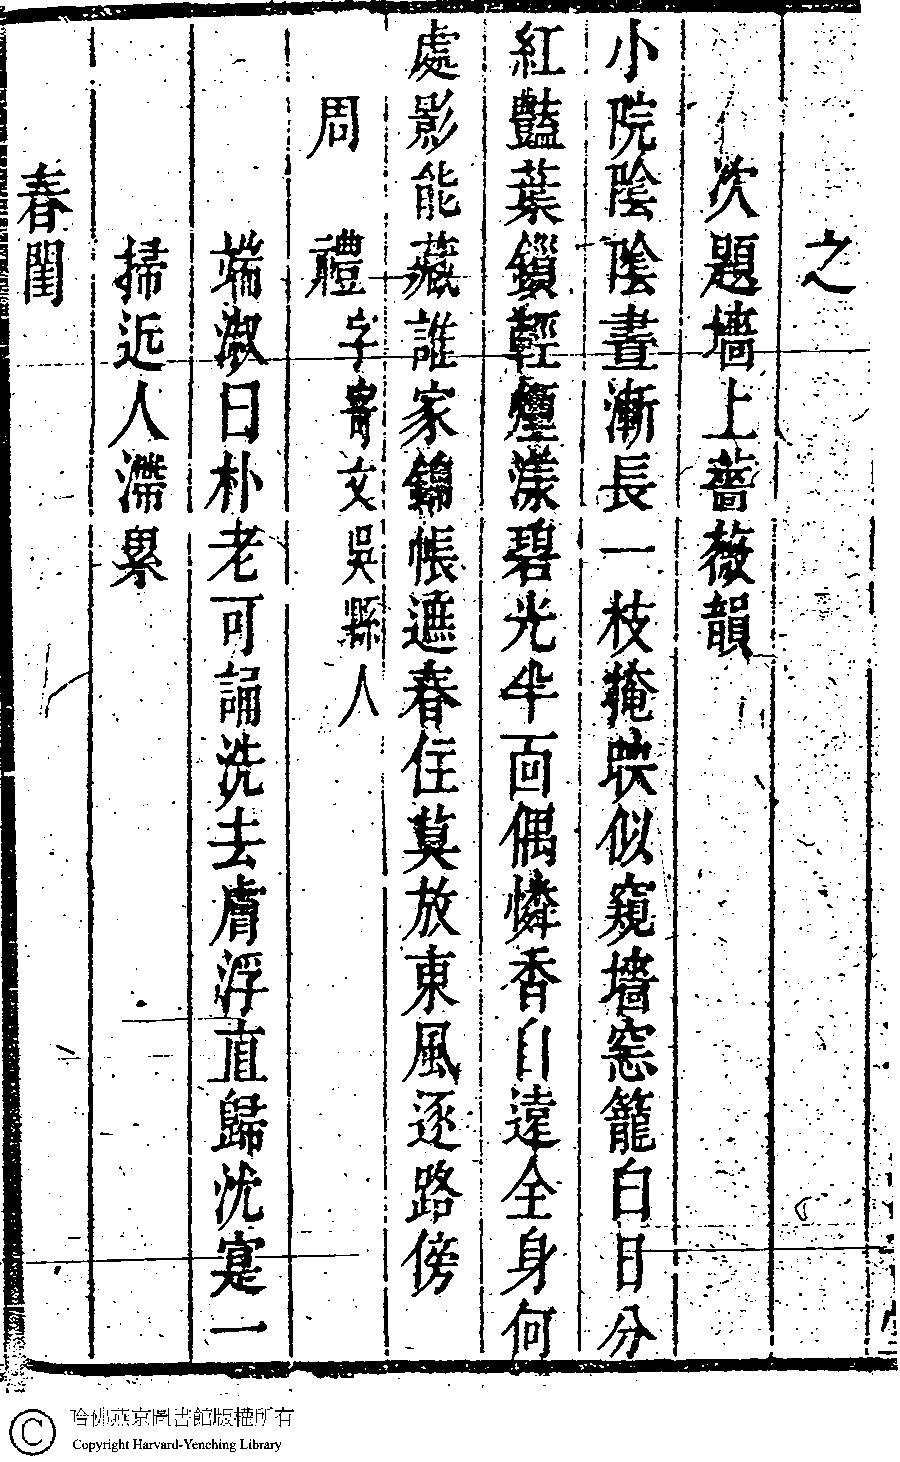 之
次題墻上薔薇韻
小院陰陰晝漸長一枝掩映似窺墻窓籠白日分
紅豔葉鎖輕煙漾碧光半面偶憐香自遠全身何
處影能藏誰家錦帳遮春住莫放東風逐路傍
周禮字寗文吳縣人
端淑曰朴老可誦洗去膚浮直歸沈寔一
掃近人滯累
春閨
哈佛燕京圖書館版權所有
Copyright Harvard-Yenching Library